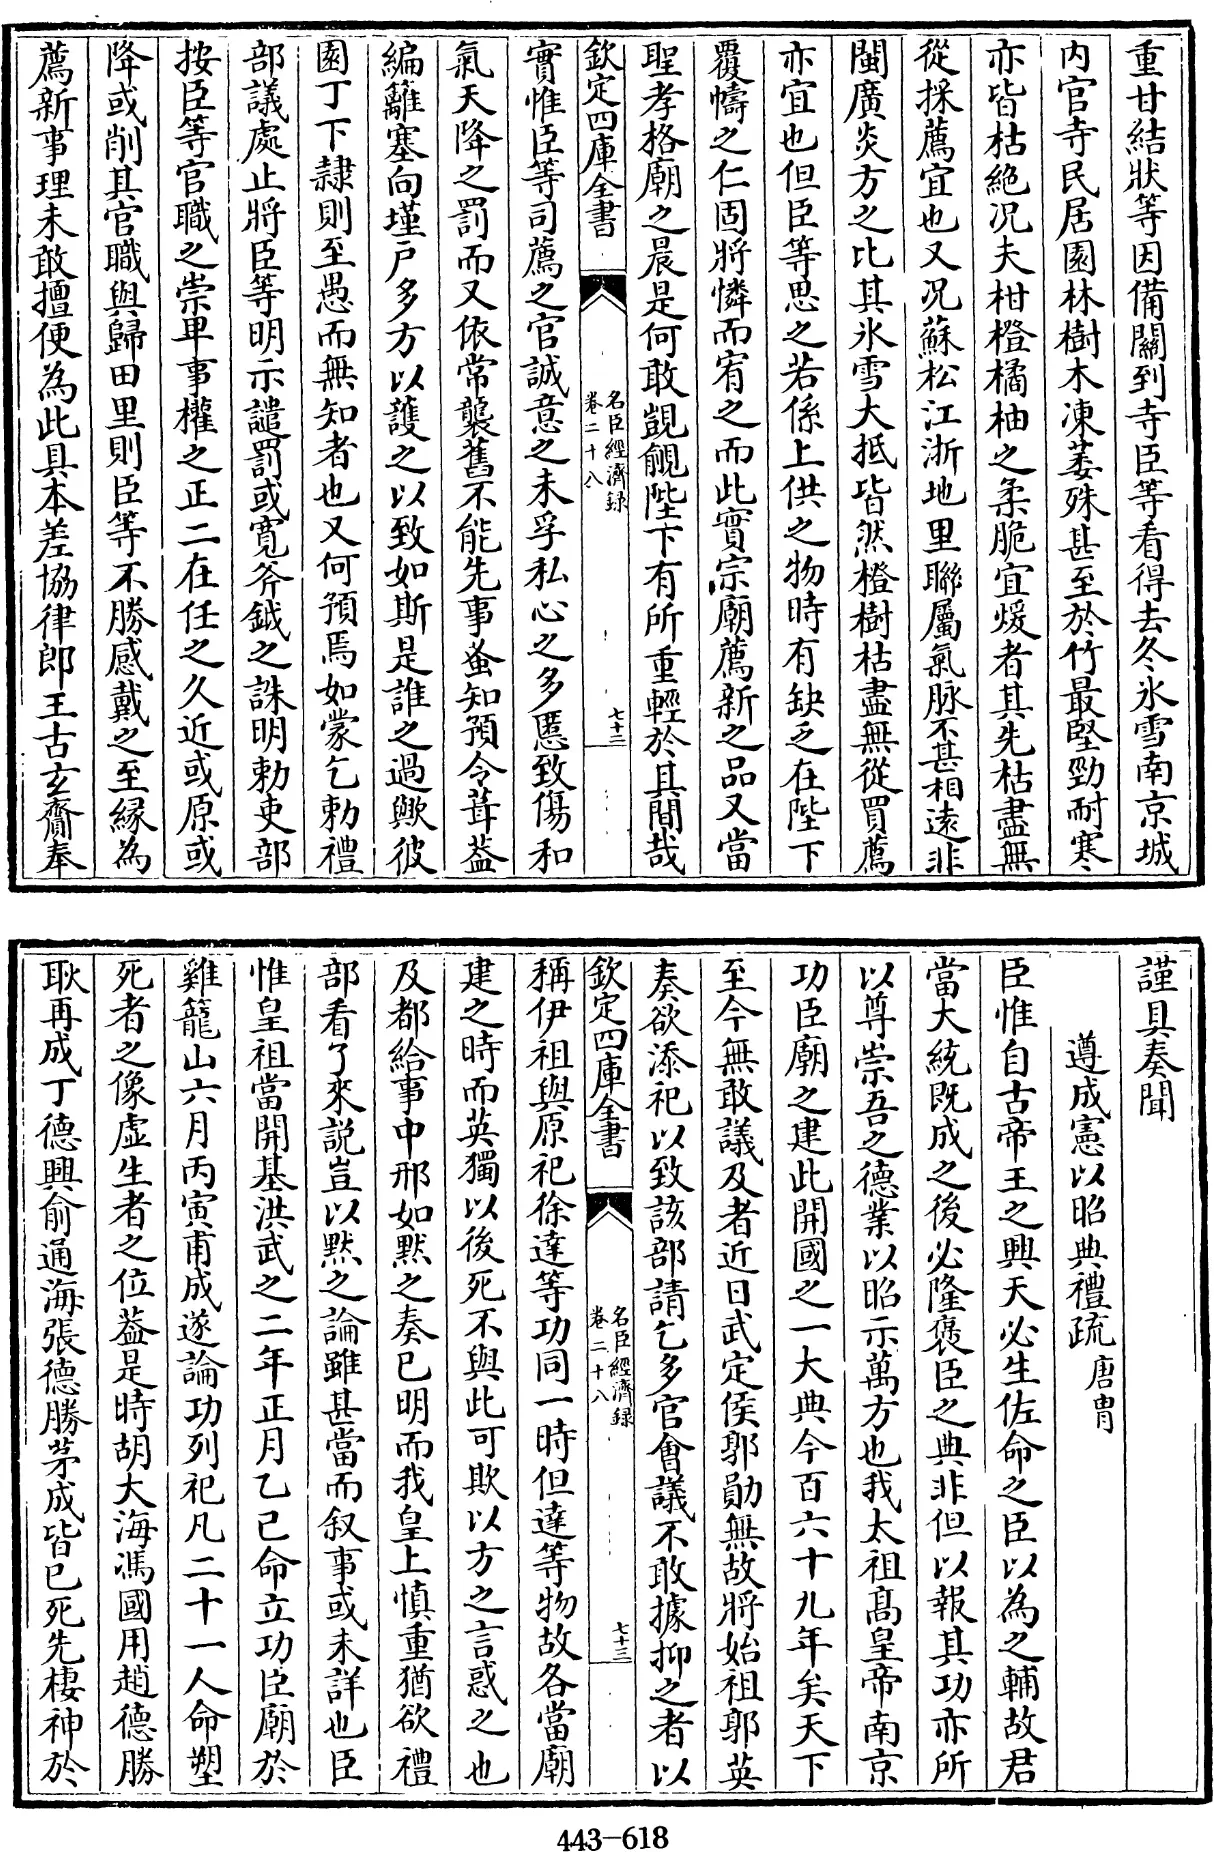 重甘結狀等因備關到寺臣等看得去冬氷雪南京城
内官寺民居園林樹木凍萎殊甚至於竹最堅勁耐寒
亦皆枯絶况夫柑橙橘柚之柔脆宜煖者其先枯盡無
從採薦宜也又况蘇松江浙地里聯屬氣脉不甚相逺非
閩廣炎方之比其氷雪大抵皆然橙樹枯盡無從買薦
亦宜也但臣等思之若係上供之物時有缺乏在陛下
覆幬之仁固將憐而宥之而此實宗廟薦新之品又當
聖孝格廟之晨是何敢覬覦陛下有所重輕於其間哉
欽定四庫全書
名臣經濟録
卷二十八
七十二
實惟臣等司薦之官誠意之未孚私心之多慝致傷和
氣天降之罰而又依常襲舊不能先事蚤知預令葺葢
編籬塞向墐户多方以護之以致如斯是誰之過歟彼
園丁下隷則至愚而無知者也又何預焉如蒙乞勅禮
部議處止將臣等明示譴罰或寛斧鉞之誅明勅吏部
按臣等官職之崇卑事權之正二在任之久近或原或
降或削其官職與歸田里則臣等不勝感戴之至縁為
薦新事理未敢擅便為此具本差協律郎王古玄齎奉
謹具奏聞
遵成憲以昭典禮疏 唐胄
臣惟自古帝王之興天必生佐命之臣以為之輔故君
當大統既成之後必隆褒臣之典非但以報其功亦所
以尊崇吾之德業以昭示萬方也我太祖髙皇帝南京
功臣廟之建此開國之一大典今百六十九年矣天下
至今無敢議及者近日武定侯郭勛無故將始祖郭英
奏欲添祀以致該部請乞多官會議不敢據抑之者以
欽定四庫全書
名臣經濟録
卷二十八
七十三
稱伊祖與原祀徐達等功同一時但達等物故各當廟
建之時而英獨以後死不與此可欺以方之言惑之也
及都給事中邢如黙之奏已明而我皇上慎重猶欲禮
部看了來説豈以黙之論雖甚當而叙事或未詳也臣
惟皇祖當開基洪武之二年正月乙己命立功臣廟於
雞籠山六月丙寅甫成遂論功列祀凡二十一人命塑
死者之像虚生者之位葢是時胡大海馮國用趙德勝
耿再成丁德興俞通海張德勝茅成皆已死先棲神於
443-618